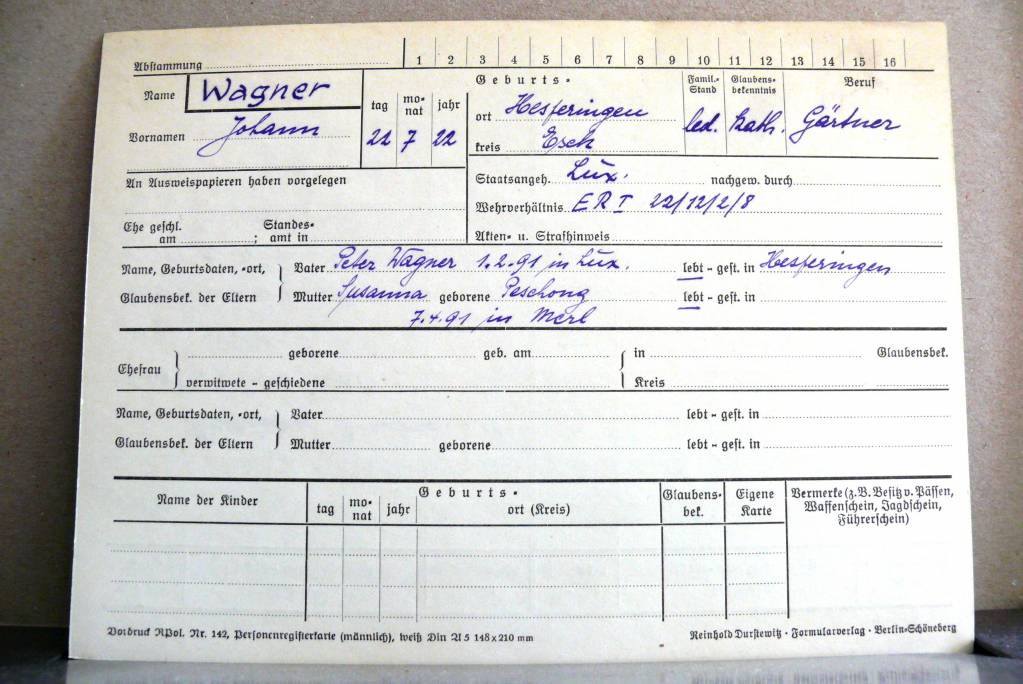 Abstammung 1 2 3 4 5 6 7 8 9 10 11 12 13 14 15 16
Name Wagner
Vornamen Johann
tag monat jahr
22 7 22
Geburts-
ort Hesperingen
kreis Esch
Famil.-Stand
led.
Glaubensbekenntnis
kath.
Beruf
Gärtner
An Ausweispapieren haben vorgelegen
Staatsangeh. Lux. nachgew. durch
Wehrverhältnis ER I 22/12/2/8
Ehe geschl. am ; Standesamt in
Akten- u. Strafhinweis
Name, Geburtsdaten, -ort, Vater Peter Wagner 1.2.91 in Lux. lebt - gest. in Hesperingen
Glaubensbek. der Eltern Mutter Susanna geborene Peschong lebt - gest. in
7.4.91 in Merl
Ehefrau geborene geb. am in Glaubensbek.
verwitwete - geschiedene Kreis
Name, Geburtsdaten, -ort, Vater lebt - gest. in
Glaubensbek. der Eltern Mutter geborene lebt - gest. in
Name der Kinder
tag monat jahr
Geburts-
ort (Kreis)
Glaubensbek.
Eigene Karte
Vermerke (z.B. Besitz v. Pässen,
Waffenschein, Jagdschein,
Führerschein)
Vordruck RPol. Nr. 142, Personenregisterkarte (männlich), weiß Din A 5 148 x 210 mm
Reinhold Durstewitz · Formularverlag · Berlin-Schöneberg